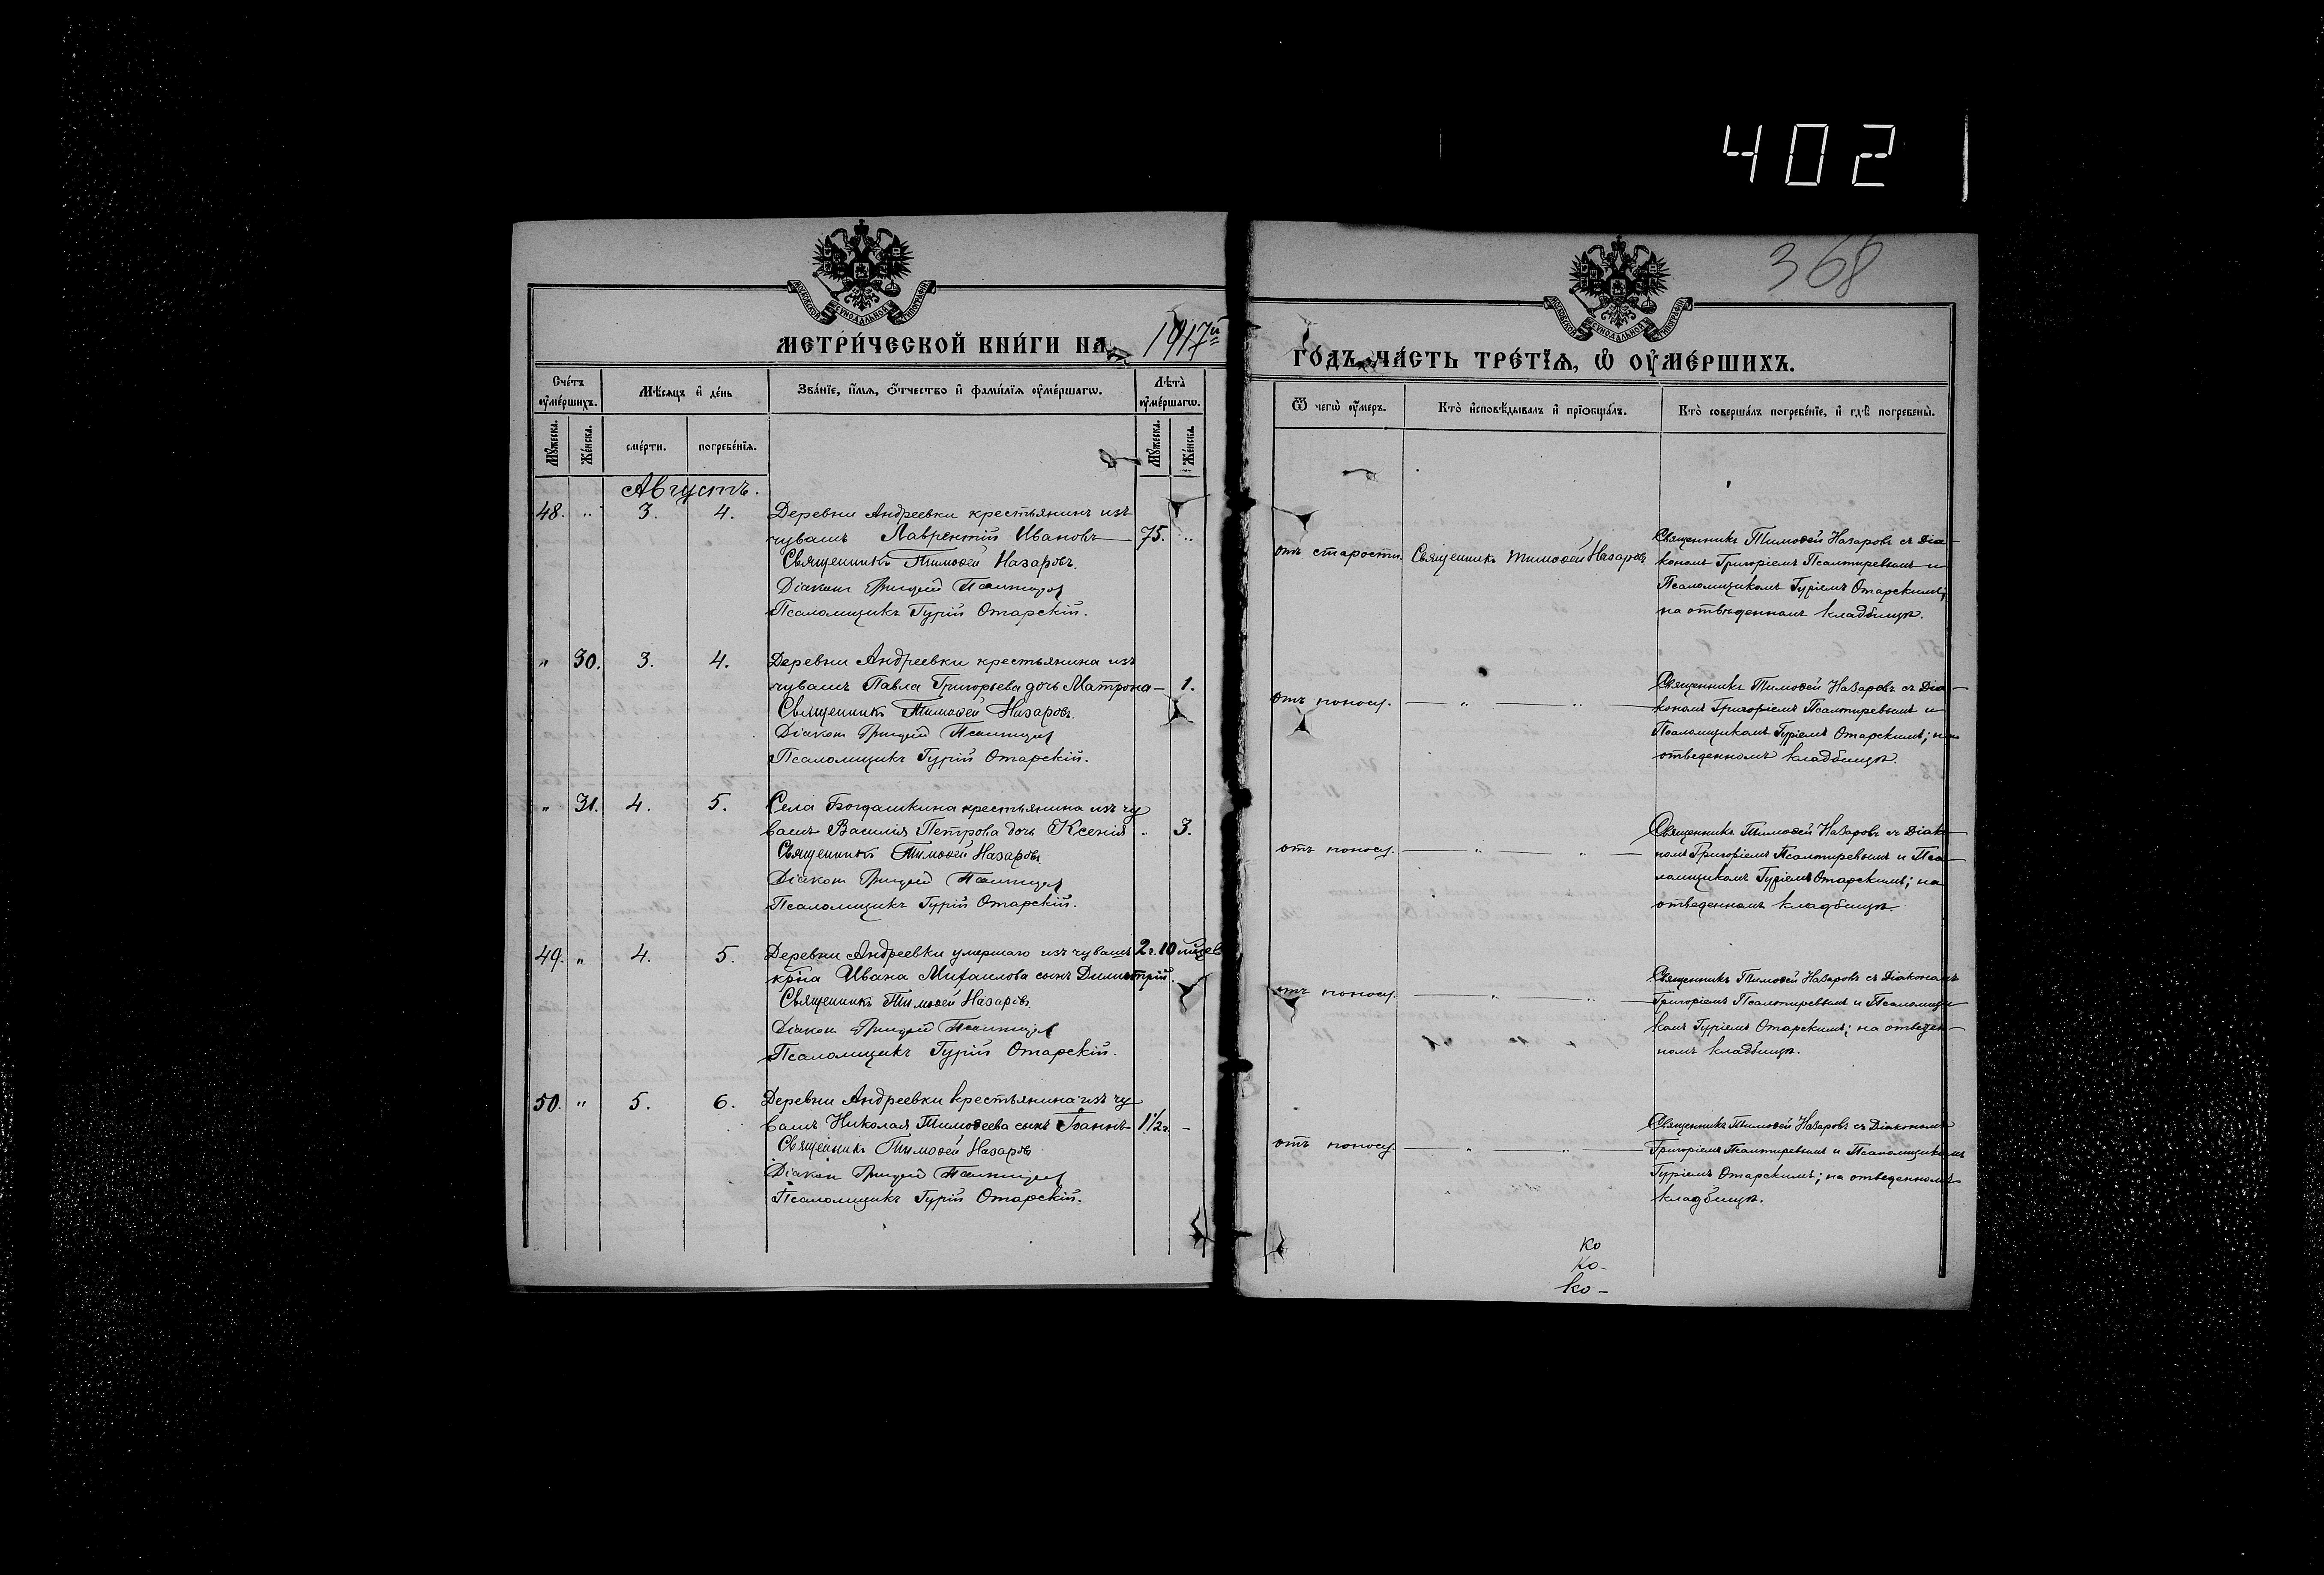 402
368
МОСКОВСКОЙ СѴНОДАЛЬНОЙ ТИПОГРАФІИ
МОСКОВСКОЙ СѴНОДАЛЬНОЙ ТИПОГРАФІИ
МЕТРИ́ЧЕСКОЙ КНИ́ГИ НА 1917й
ГО́ДЪ, ЧА́СТЬ ТРЕ́ТЇѦ, Ѽ ОУ҆МЕ́РШИХЪ.
Сче́тъ оу҆ме́ршихъ.
Мѣ́сѧцъ и҆ де́нь
Зва́нїе, и҆́мѧ, ѻ҆́тчество и҆ фами́лїѧ оу҆ме́ршагѡ.
Лѣ́та оу҆ме́ршагѡ.
Ѿ чегѡ̀ оу҆́меръ.
Кто̀ и҆сповѣ́дывалъ и҆ прїѡбща́лъ.
Кто̀ соверша́лъ погребе́нїе, и҆ гдѣ̀ погребены̀.
Мꙋ́жеска.
Же́нска.
сме́рти.
погребе́нїѧ.
Мꙋ́жеска.
Же́нска.
Августъ.
48. „ 3. 4. Деревни Андреевки крестьянинъ изъ
чувашъ Лаврентій Ивановъ 75. „
Священникъ Тимоѳей Назаровъ.
Діаконъ Григорій Псалтиревъ
Псаломщикъ Гурій Отарскій.
отъ старости. Священникъ Тимоѳей Назаровъ
Священникъ Тимоѳей Назаровъ съ Діа-
кономъ Григоріемъ Псалтиревымъ и
Псаломщикомъ Гуріемъ Отарскимъ;
на отведенномъ кладбищѣ.
„ 30. 3. 4. Деревни Андреевки крестьянина изъ
чувашъ Павла Григорьева дочь Матрона – 1.
Священникъ Тимоѳей Назаровъ.
Діаконъ Григорій Псалтиревъ
Псаломщикъ Гурій Отарскій.
отъ поносу. — „ — „ —
Священникъ Тимоѳей Назаровъ съ Діа-
кономъ Григоріемъ Псалтиревымъ и
Псаломщикомъ Гуріемъ Отарскимъ; на
отведенномъ кладбищѣ.
„ 31. 4. 5. Села Богдашкина крестьянина изъ чу
вашъ Василія Петрова дочь Ксенія „ 3.
Священникъ Тимоѳей Назаровъ.
Діаконъ Григорій Псалтиревъ
Псаломщикъ Гурій Отарскій.
отъ поносу. — „ — „ —
Священникъ Тимоѳей Назаровъ съ Діако-
номъ Григоріемъ Псалтиревымъ и Пса-
ломщикомъ Гуріемъ Отарскимъ; на
отведенномъ кладбищѣ.
49. „ 4. 5. Деревни Андреевки умершаго изъ чувашъ 2 г. 10 мѣсе
кр̃на Ивана Михаилова сынъ Димитрій.
Священникъ Тимоѳей Назаровъ
Діаконъ Григорій Псалтиревъ
Псаломщикъ Гурій Отарскій.
отъ поносу. — „ — „ —
Священникъ Тимоѳей Назаровъ съ Діакономъ
Григоріемъ Псалтиревымъ и Псаломщи
комъ Гуріемъ Отарскимъ; на отведен-
номъ кладбищѣ.
50. „ 5. 6. Деревни Андреевки крестьянина изъ чу
вашъ Николая Тимоѳеева сынъ Іоаннъ 1 1/2 г. –
Священникъ Тимоѳей Назаровъ
Діаконъ Григорій Псалтиревъ
Псаломщикъ Гурій Отарскій.
отъ поносу. — „ — „ —
Священникъ Тимоѳей Назаровъ съ Діакономъ
Григоріемъ Псалтиревымъ и Псаломщикомъ
Гуріемъ Отарскимъ; на отведенномъ
кладбищѣ.
ко
ко-
ко-